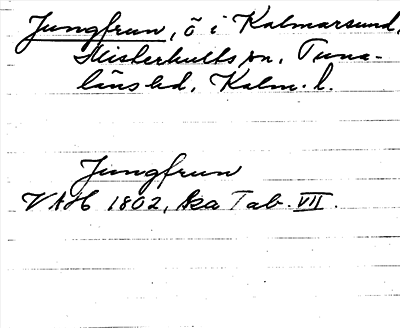 Jungfrun, ö i Kalmarsund,
Misterhults sn, Tuna-
läns hd, Kalm. l.
Jungfrun
VAH 1802, Ska Tab. VII.